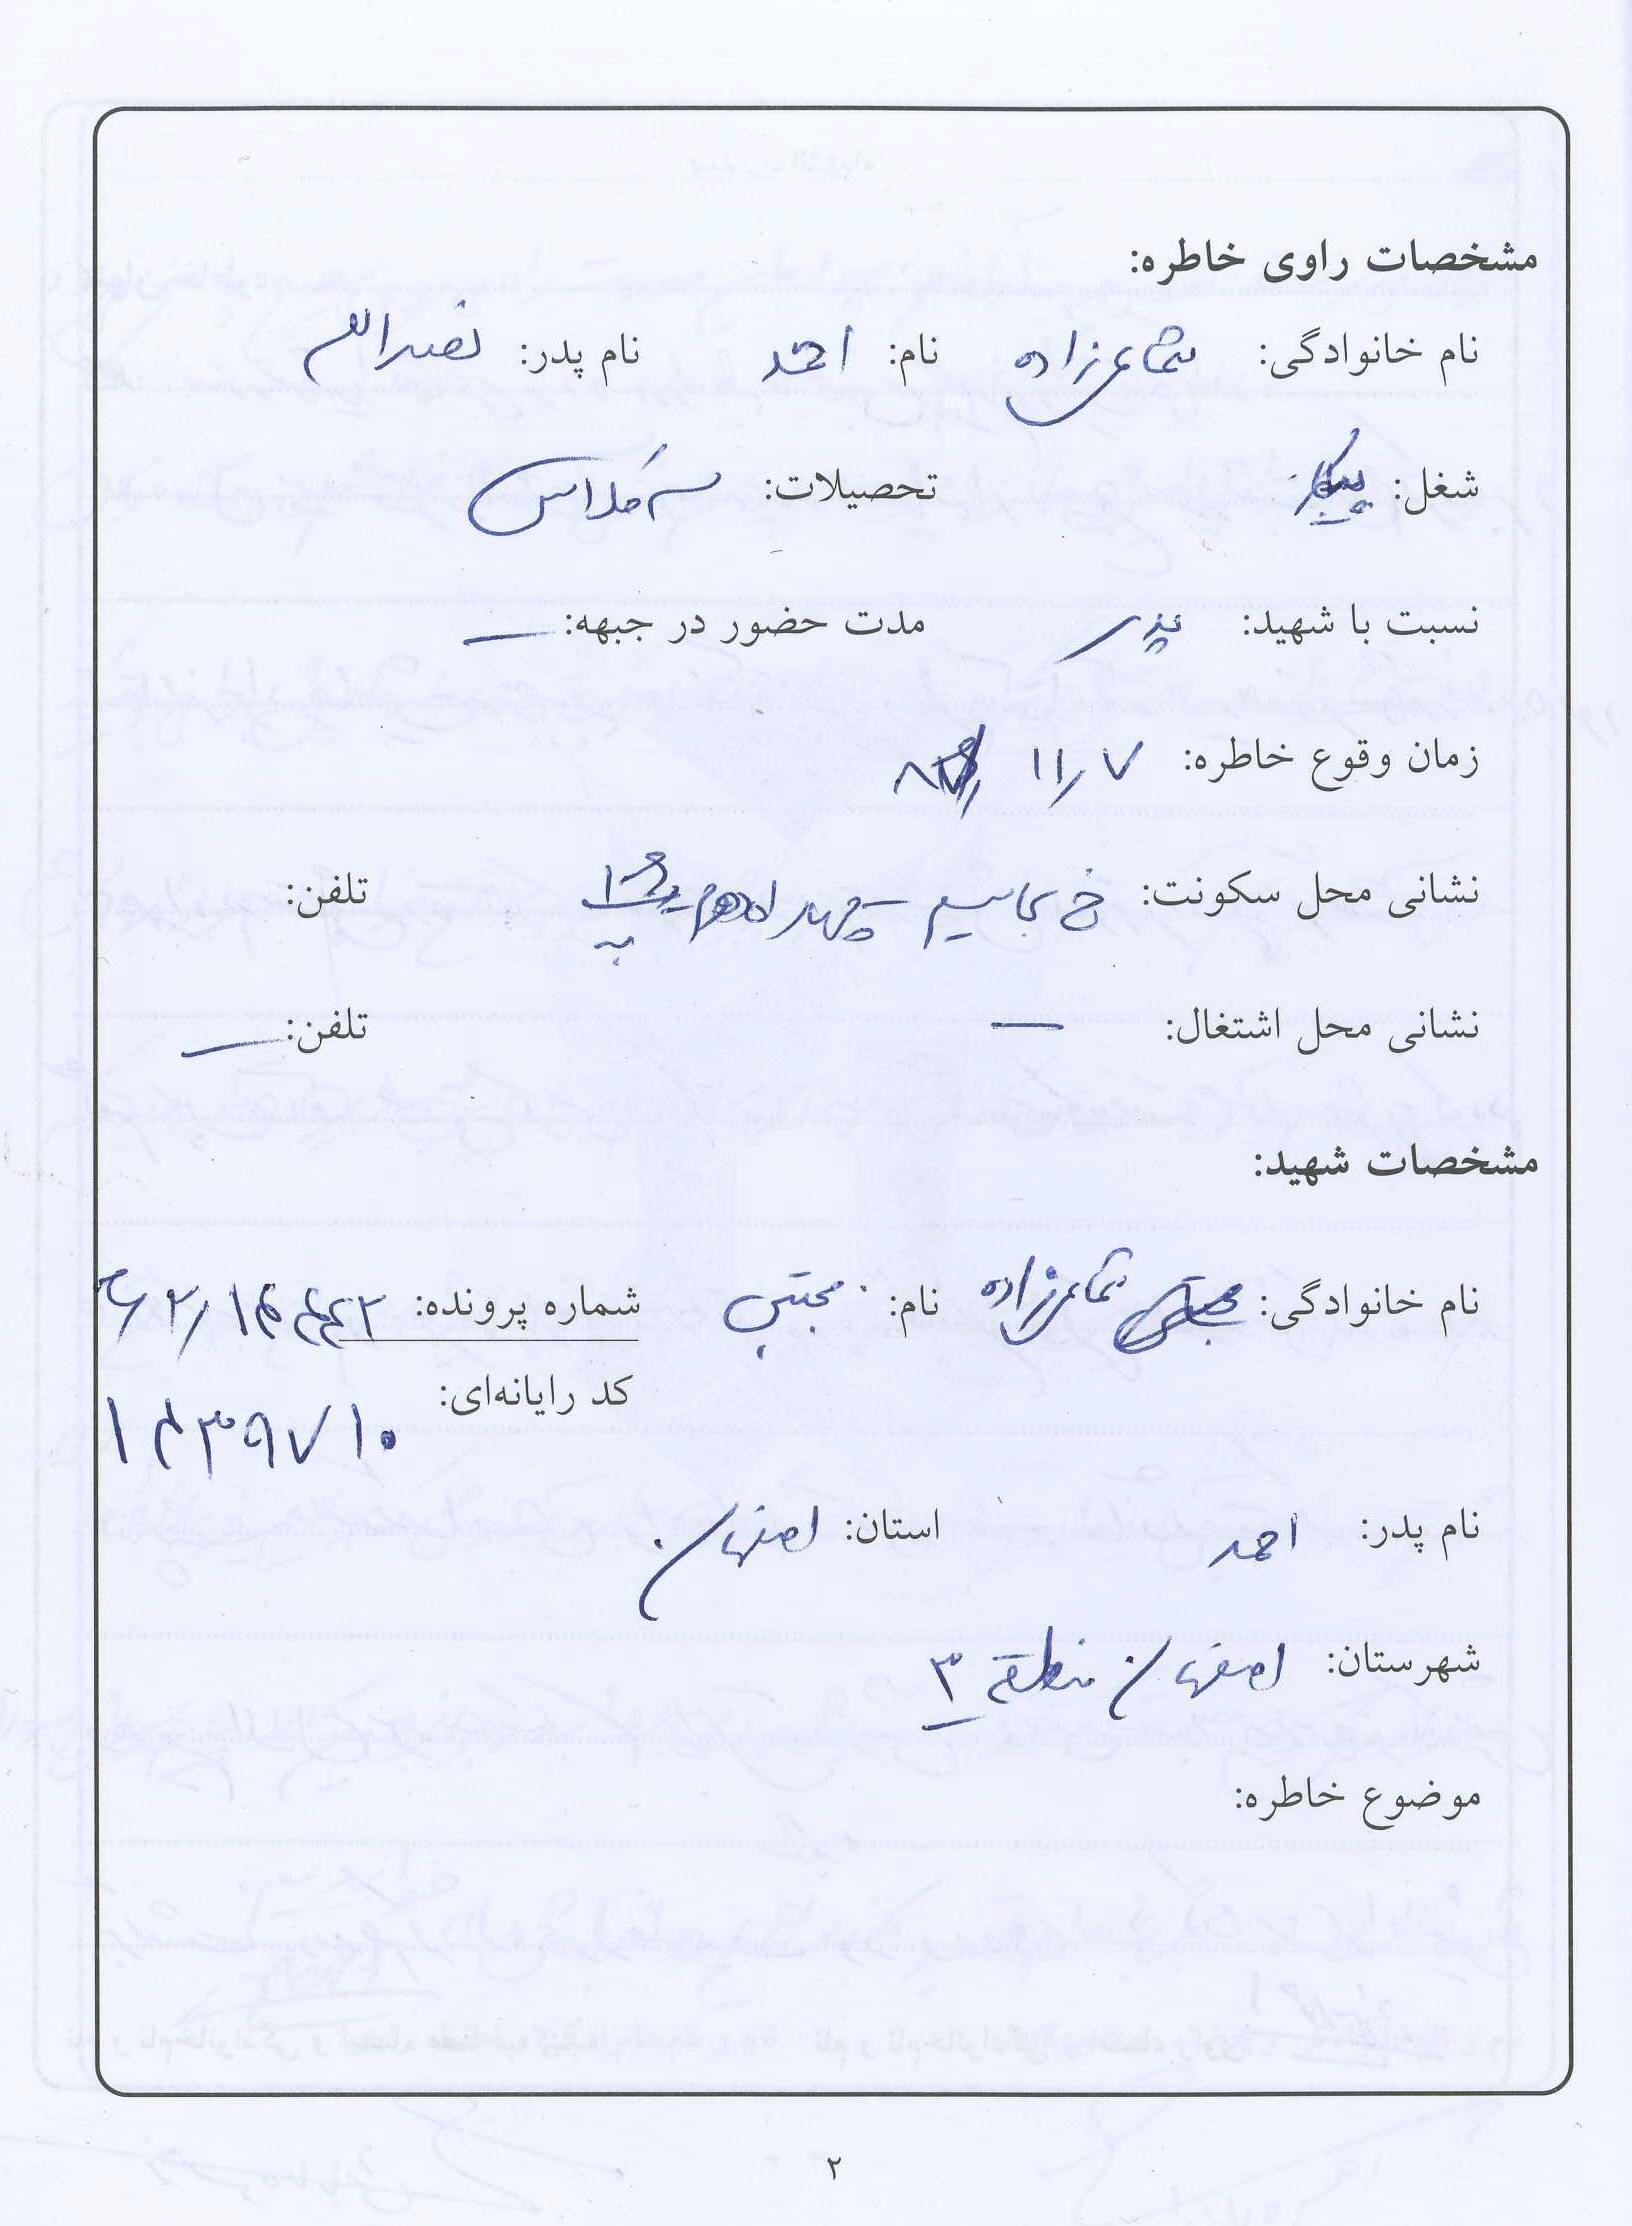 مشخصات راوی خاطره:
نام خانوادگی: شماعی‌زاده نام: احمد نام پدر: نصراله
شغل: بیکار تحصیلات: سه کلاس
نسبت با شهید: پدر مدت حضور در جبهه: —
زمان وقوع خاطره: ۱۱/۷
نشانی محل سکونت: خ تلفن:
نشانی محل اشتغال: — تلفن: —
مشخصات شهید:
نام خانوادگی: شماعی‌زاده نام: مجتبی شماره پرونده:
کد رایانه‌ای: ۱۴۳۹۷۱۰
نام پدر: احمد استان: اصفهان
شهرستان: اصفهان منطقه ۳
موضوع خاطره:
۲